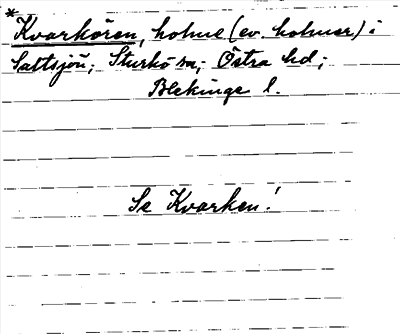 *
Kvarkören, holme (ev. holmar) i
Saltsjön; Sturkö sn; Östra hd;
Blekinge l.
Se Kvarken!